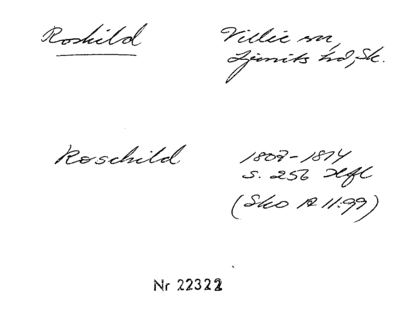 Roshild Villie sn,
Ljunits hd, Sk.
Roschild 1808-1814
s. 256 Xfl
(Sko A 11:99)
Nr 22322